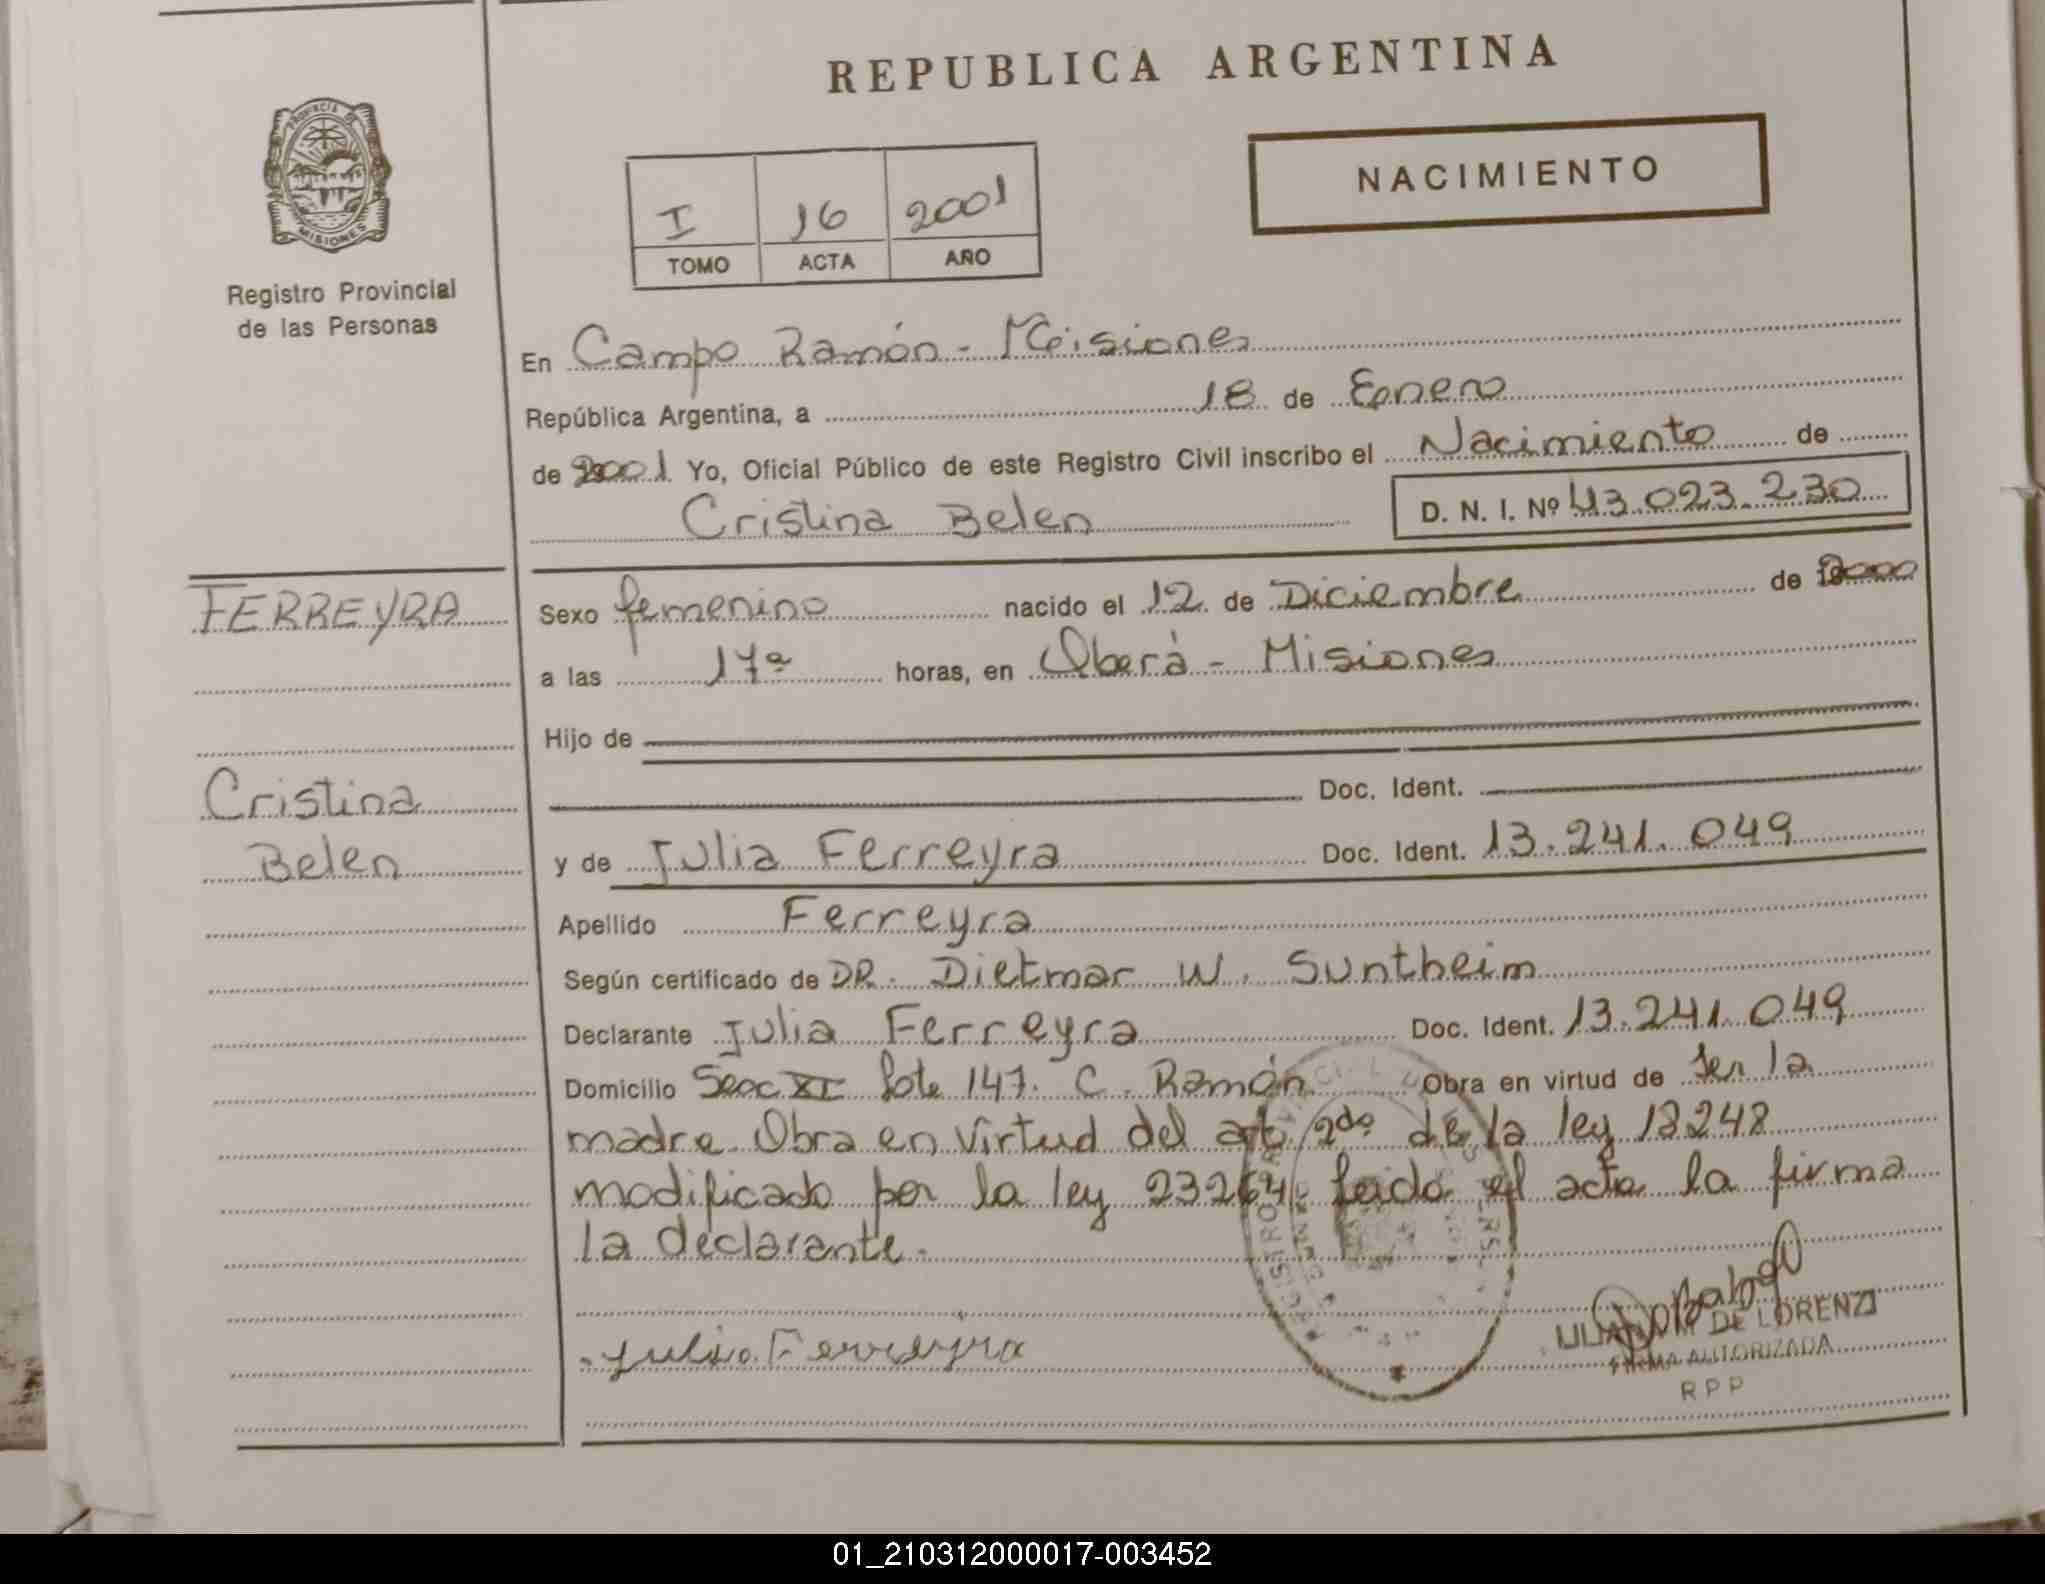 REPUBLICA ARGENTINA
NACIMIENTO
I 16 2001
TOMO ACTA AÑO
PROVINCIA DE MISIONES
Registro Provincial
de las Personas
En Campo Ramón - Misiones
República Argentina, a 18 de Enero
de 2001 Yo, Oficial Público de este Registro Civil inscribo el Nacimiento de
Cristina Belen D. N. I. Nº 43.023.230
FERREYRA
Cristina
Belen
Sexo femenino nacido el 12 de Diciembre de 2000
a las 17ª horas, en Oberá - Misiones
Hijo de
Doc. Ident.
y de Julia Ferreyra Doc. Ident. 13.241.049
Apellido Ferreyra
Según certificado de DR. Dietmar W. Suntheim
Declarante Julia Ferreyra Doc. Ident. 13.241.049
Domicilio Secc XI lote 147. C. Ramón Obra en virtud de Ser la
madre. Obra en virtud del art 2do de la ley 18248
modificado por la ley 23264. Leida el acta la firma
la declarante.
Julia Ferreyra
DE LORENZI
FIRMA AUTORIZADA
RPP
01_210312000017-003452